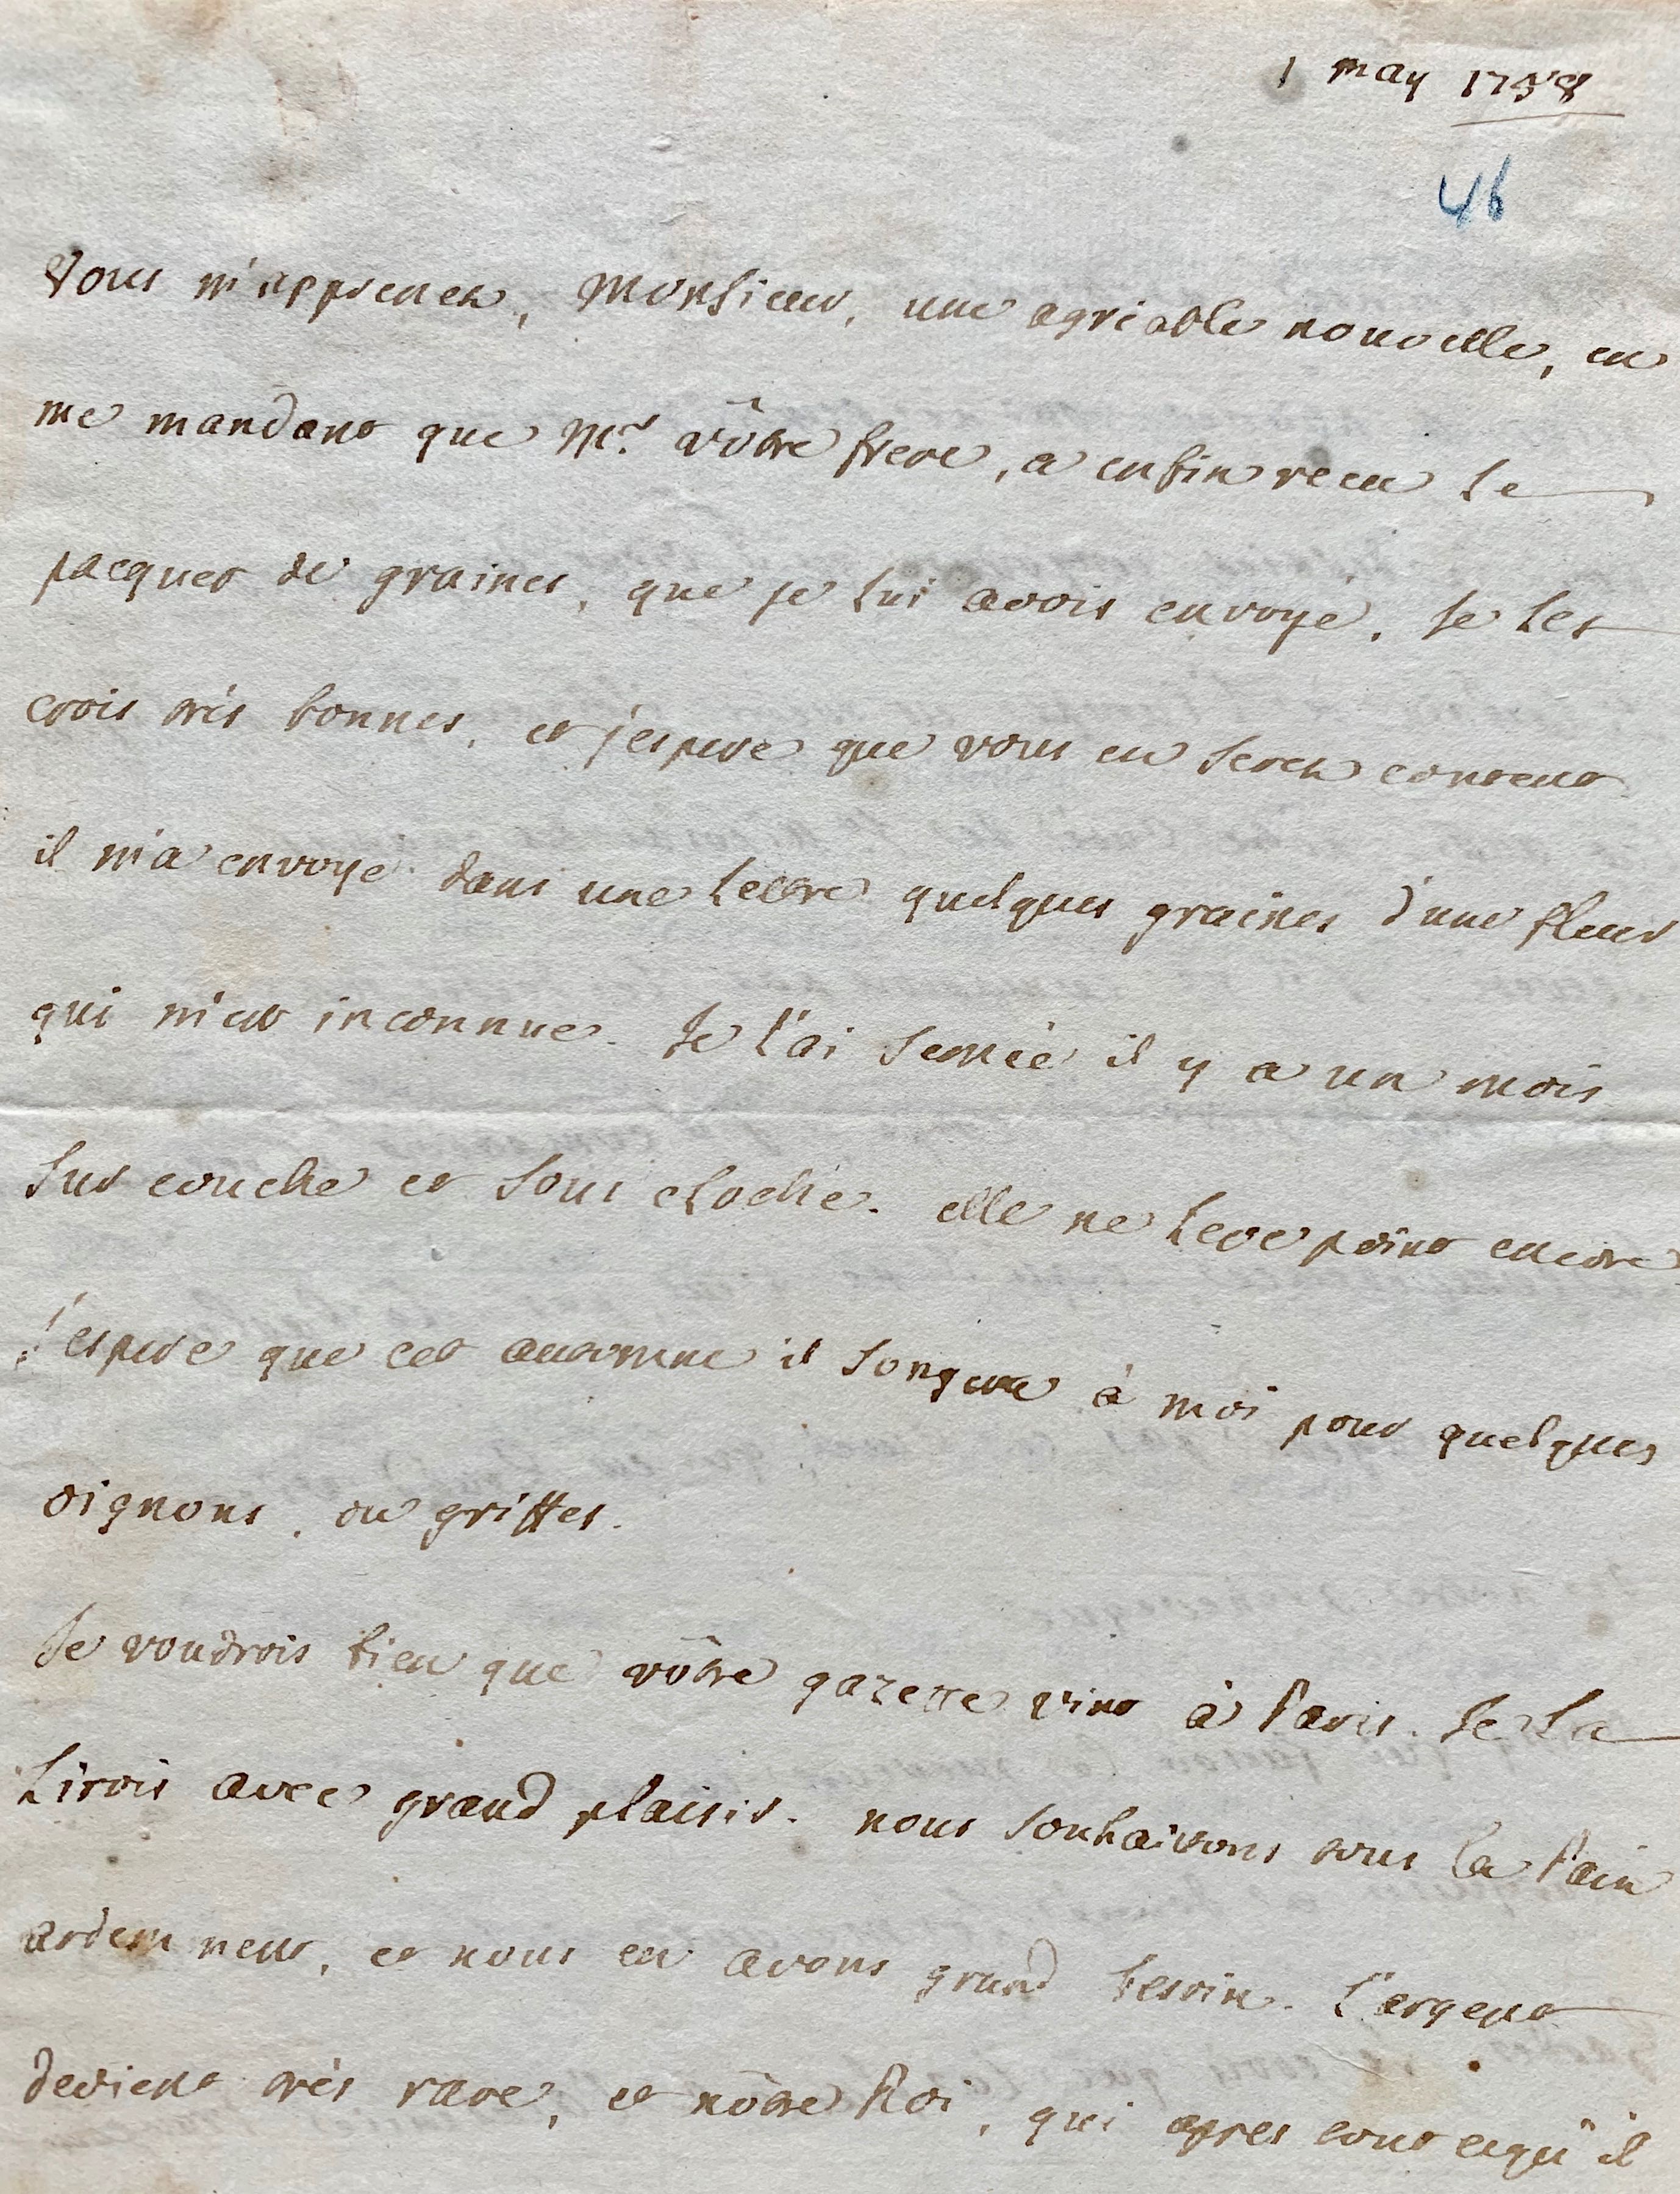 1 may 1758
46
Vous m'apprenez, Monsieur, une agréable nouvelle, en
me mandant que Mr. vôtre frere, a enfin recu le
pacquet de graines, que je lui avois envoyé. Je les
crois très bonnes, et j'espere que vous en serez content
il m'a envoyé dans une lettre quelques graines d'une fleur
qui m'est inconnue. Je l'ai semée il y a un mois
sur couche et sous cloche. elle ne leve point encore
j'espere que cet automne il songera à moi pour quelques
oignons, ou griffes.
Je voudrois bien que vôtre gazette vint à Paris. Je la
lirois avec grand plaisir. nous souhaitons tous la Paix
ardemment, et nous en avons grand besoin. L'argent
devient très rare, et nôtre Roi, qui apres tout cequ'il